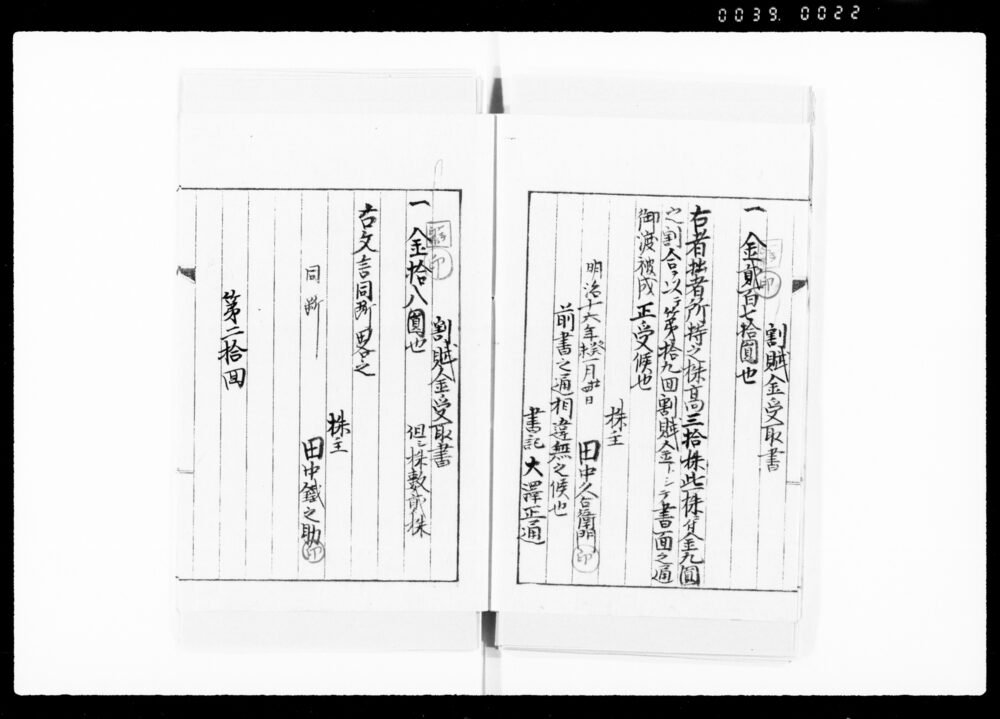 0039. 0022
割賦金受取書
一 金貮百七拾圓也
印
右者拙者所持之株高三拾株此株賃金九圓
之割合ヲ以テ第拾九回割賦金トシテ書面之通
御渡被成正受候也
明治十六年癸未一月廿日
株主
田中久右衛門 印
前書之通相違無之候也
書記 大澤正通
割賦金受取書
一 金拾八圓也 但シ株數貮株
印
右文言同断畧之
同断
株主
田中鐵之助 印
第二拾回